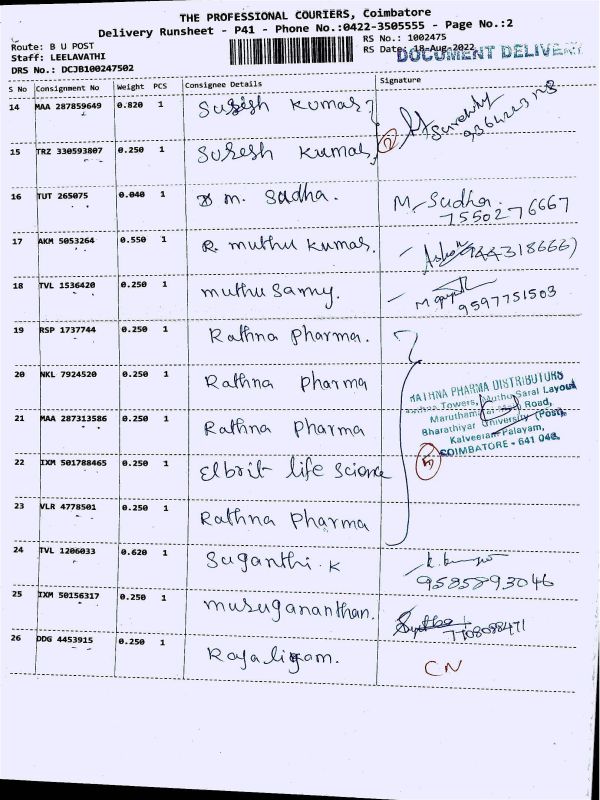 THE PROFESSIONAL COURIERS, Coimbatore
Delivery Runsheet - P41 - Phone No.:0422-3505555 - Page No.:2
Route: B U POST
Staff: LEELAVATHI
DRS No.: DCJB100247502
RS No.: 1002475
RS Date: 18-Aug-2022
DOCUMENT DELIVERY
S No Consignment No Weight PCS Consignee Details Signature
14 MAA 287859649 0.820 1 Suresh Kumar
9364223
15 TRZ 330593807 0.250 1 Suresh Kumar
16 TUT 265075 0.040 1 m. Sadha. M. Sudha.
7550276667
17 AKM 5053264 0.550 1 R. muthu kumar.
18 TVL 1536420 0.250 1 muthu samy.
9597751503
19 RSP 1737744 0.250 1 Rathna pharma.
20 NKL 7924520 0.250 1 Rathna pharma
21 MAA 287313586 0.250 1 Rathna pharma
RATHNA PHARMA DISTRIBUTORS
Towers, Muthu Saral Layout
Road,
Bharathiyar University (Post),
Kalveeram Palayam,
COIMBATORE - 641 046.
22 IXM 501788465 0.250 1 Elbrit life science
5
23 VLR 4778501 0.250 1 Rathna pharma
24 TVL 1206033 0.620 1 Suganthi. K
9585893046
25 IXM 50156317 0.250 1 murugananthan.
7708088471
26 DDG 4453915 0.250 1 Rajaligam. CN